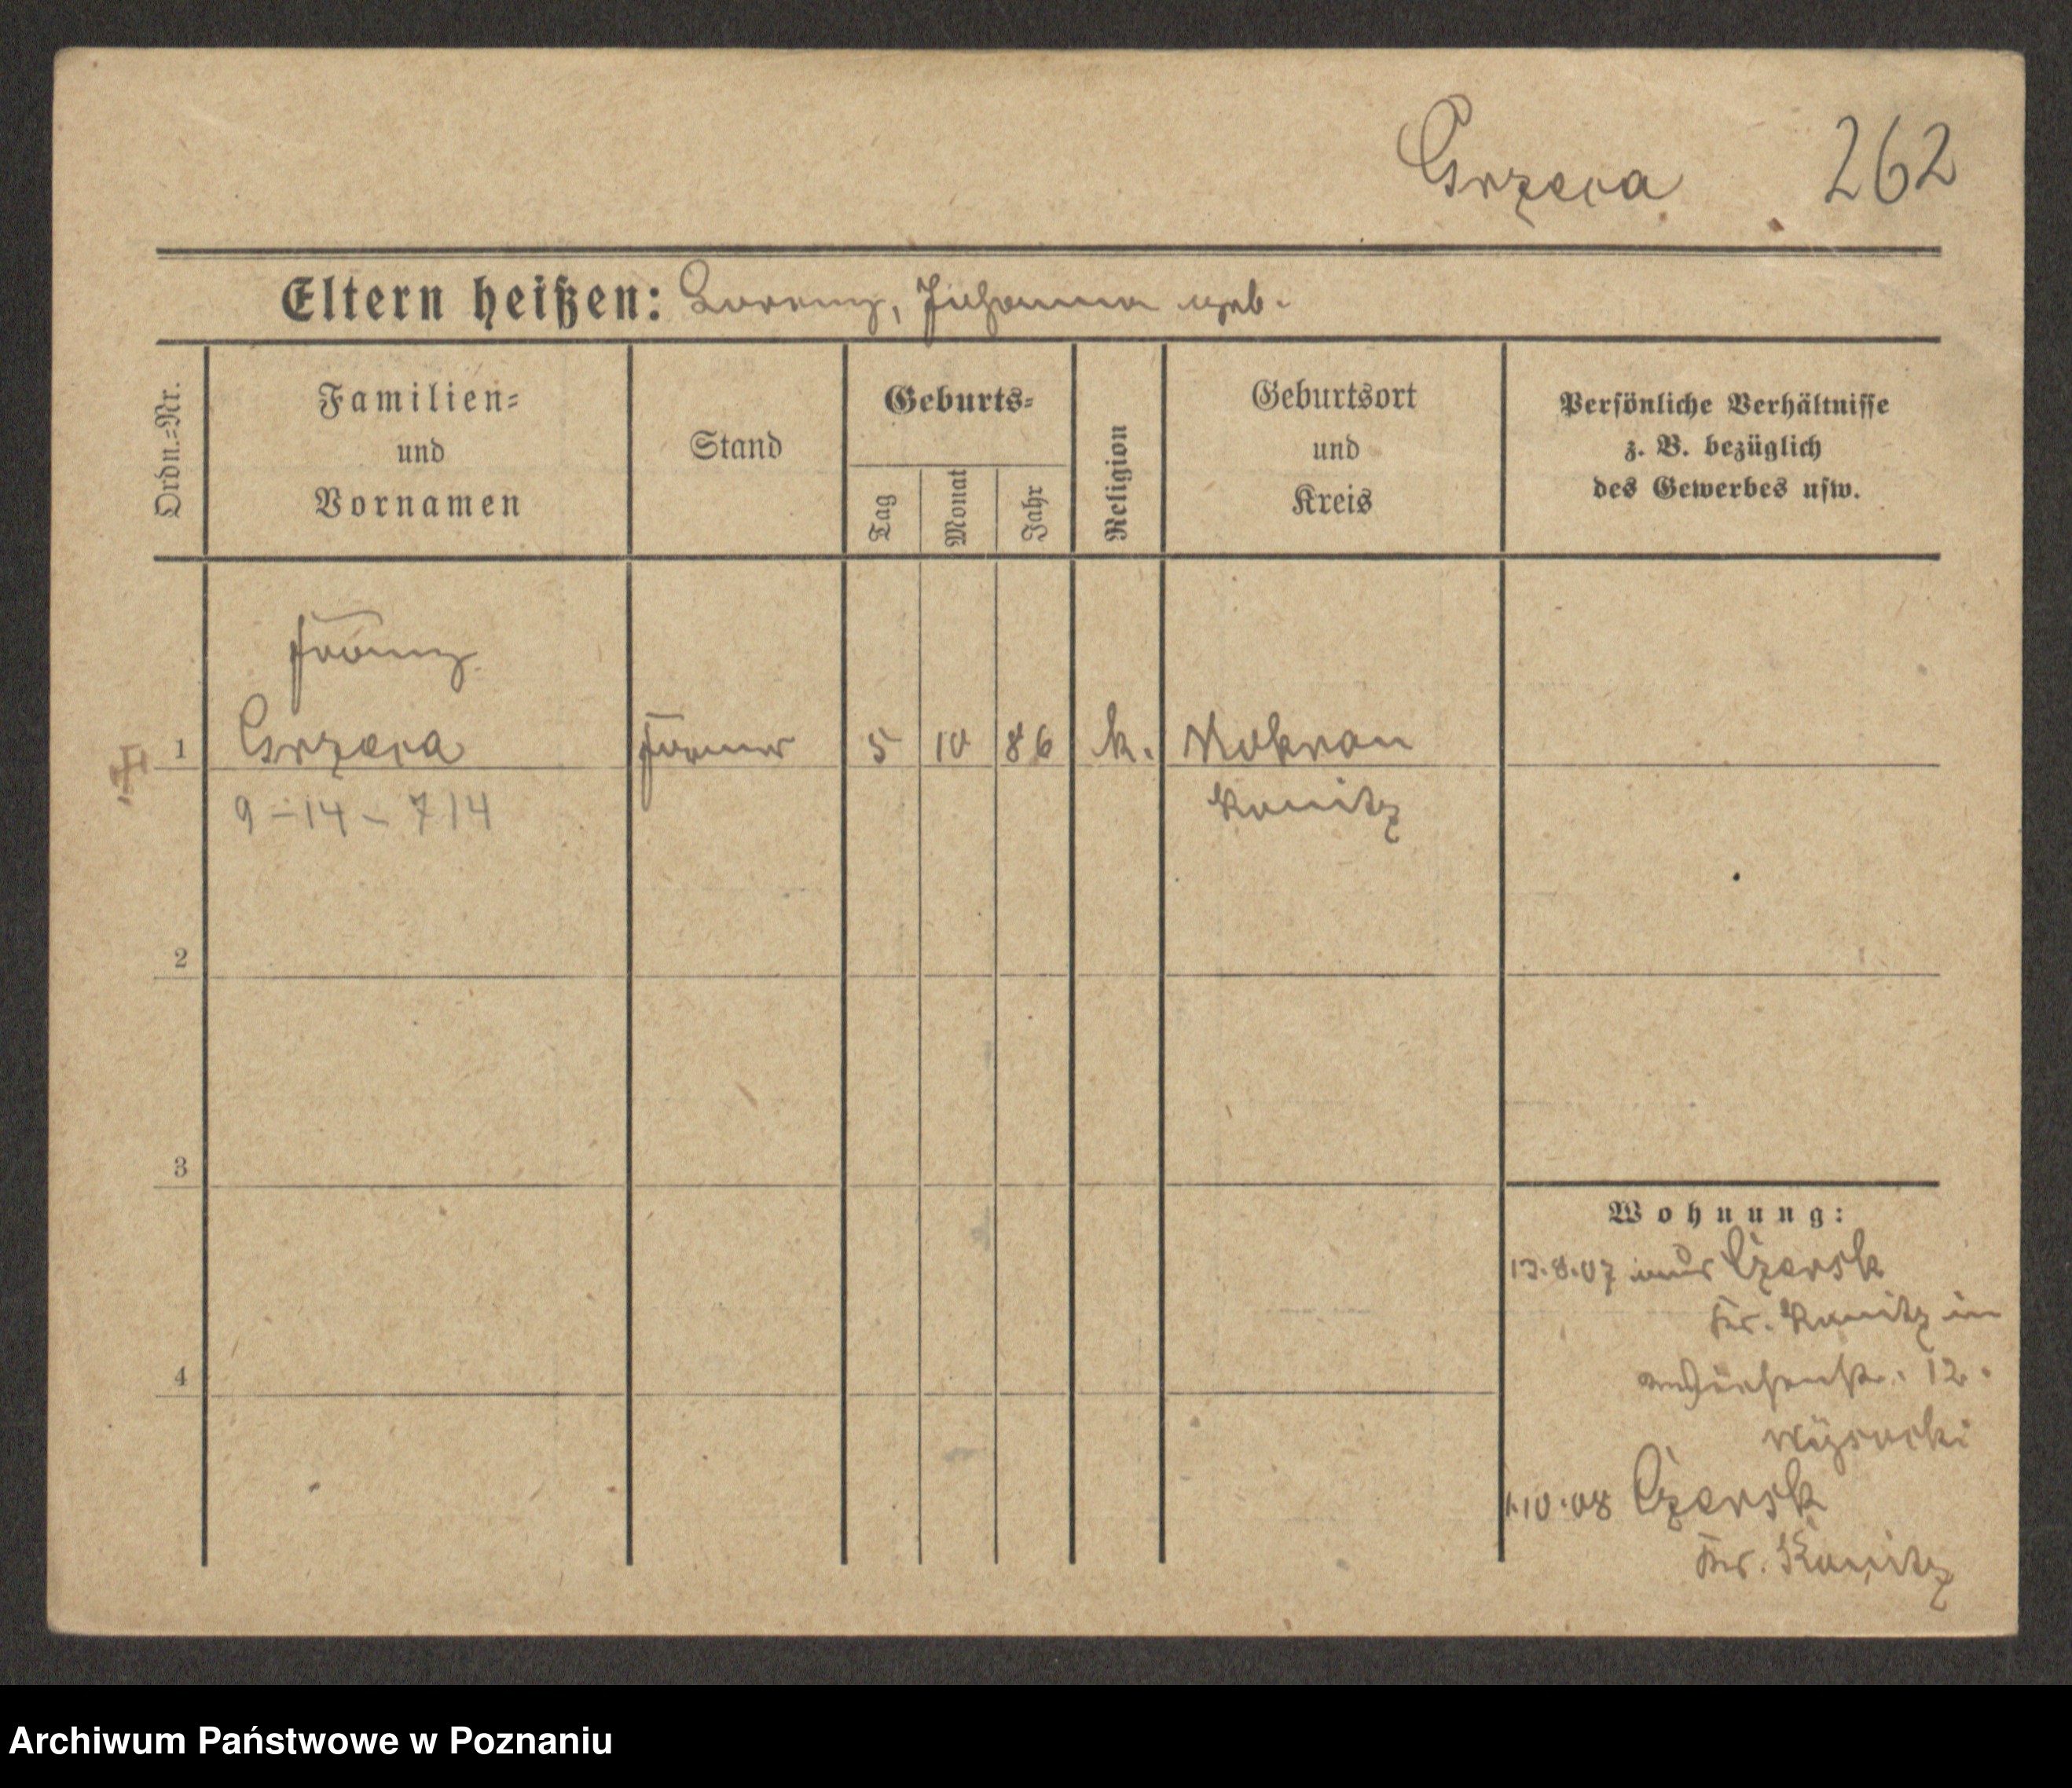 Grzeca 262
Eltern heißen: Lorenz, Johanna geb.
Ordn.=Nr.
Familien=
und
Vornamen
Stand
Geburts=
Tag
Monat
Jahr
Religion
Geburtsort
und
Kreis
Persönliche Verhältnisse
z. B. bezüglich
des Gewerbes usw.
Franz
1 Grzeca 5 10 86 k. Mokrau
9-14-714 Konitz
2
3
4
Wohnung:
13.8.07 aus Czersk
Kr. Konitz in
12.
Wysocki
1.10.08 Czersk
Kr. Konitz
Archiwum Państwowe w Poznaniu